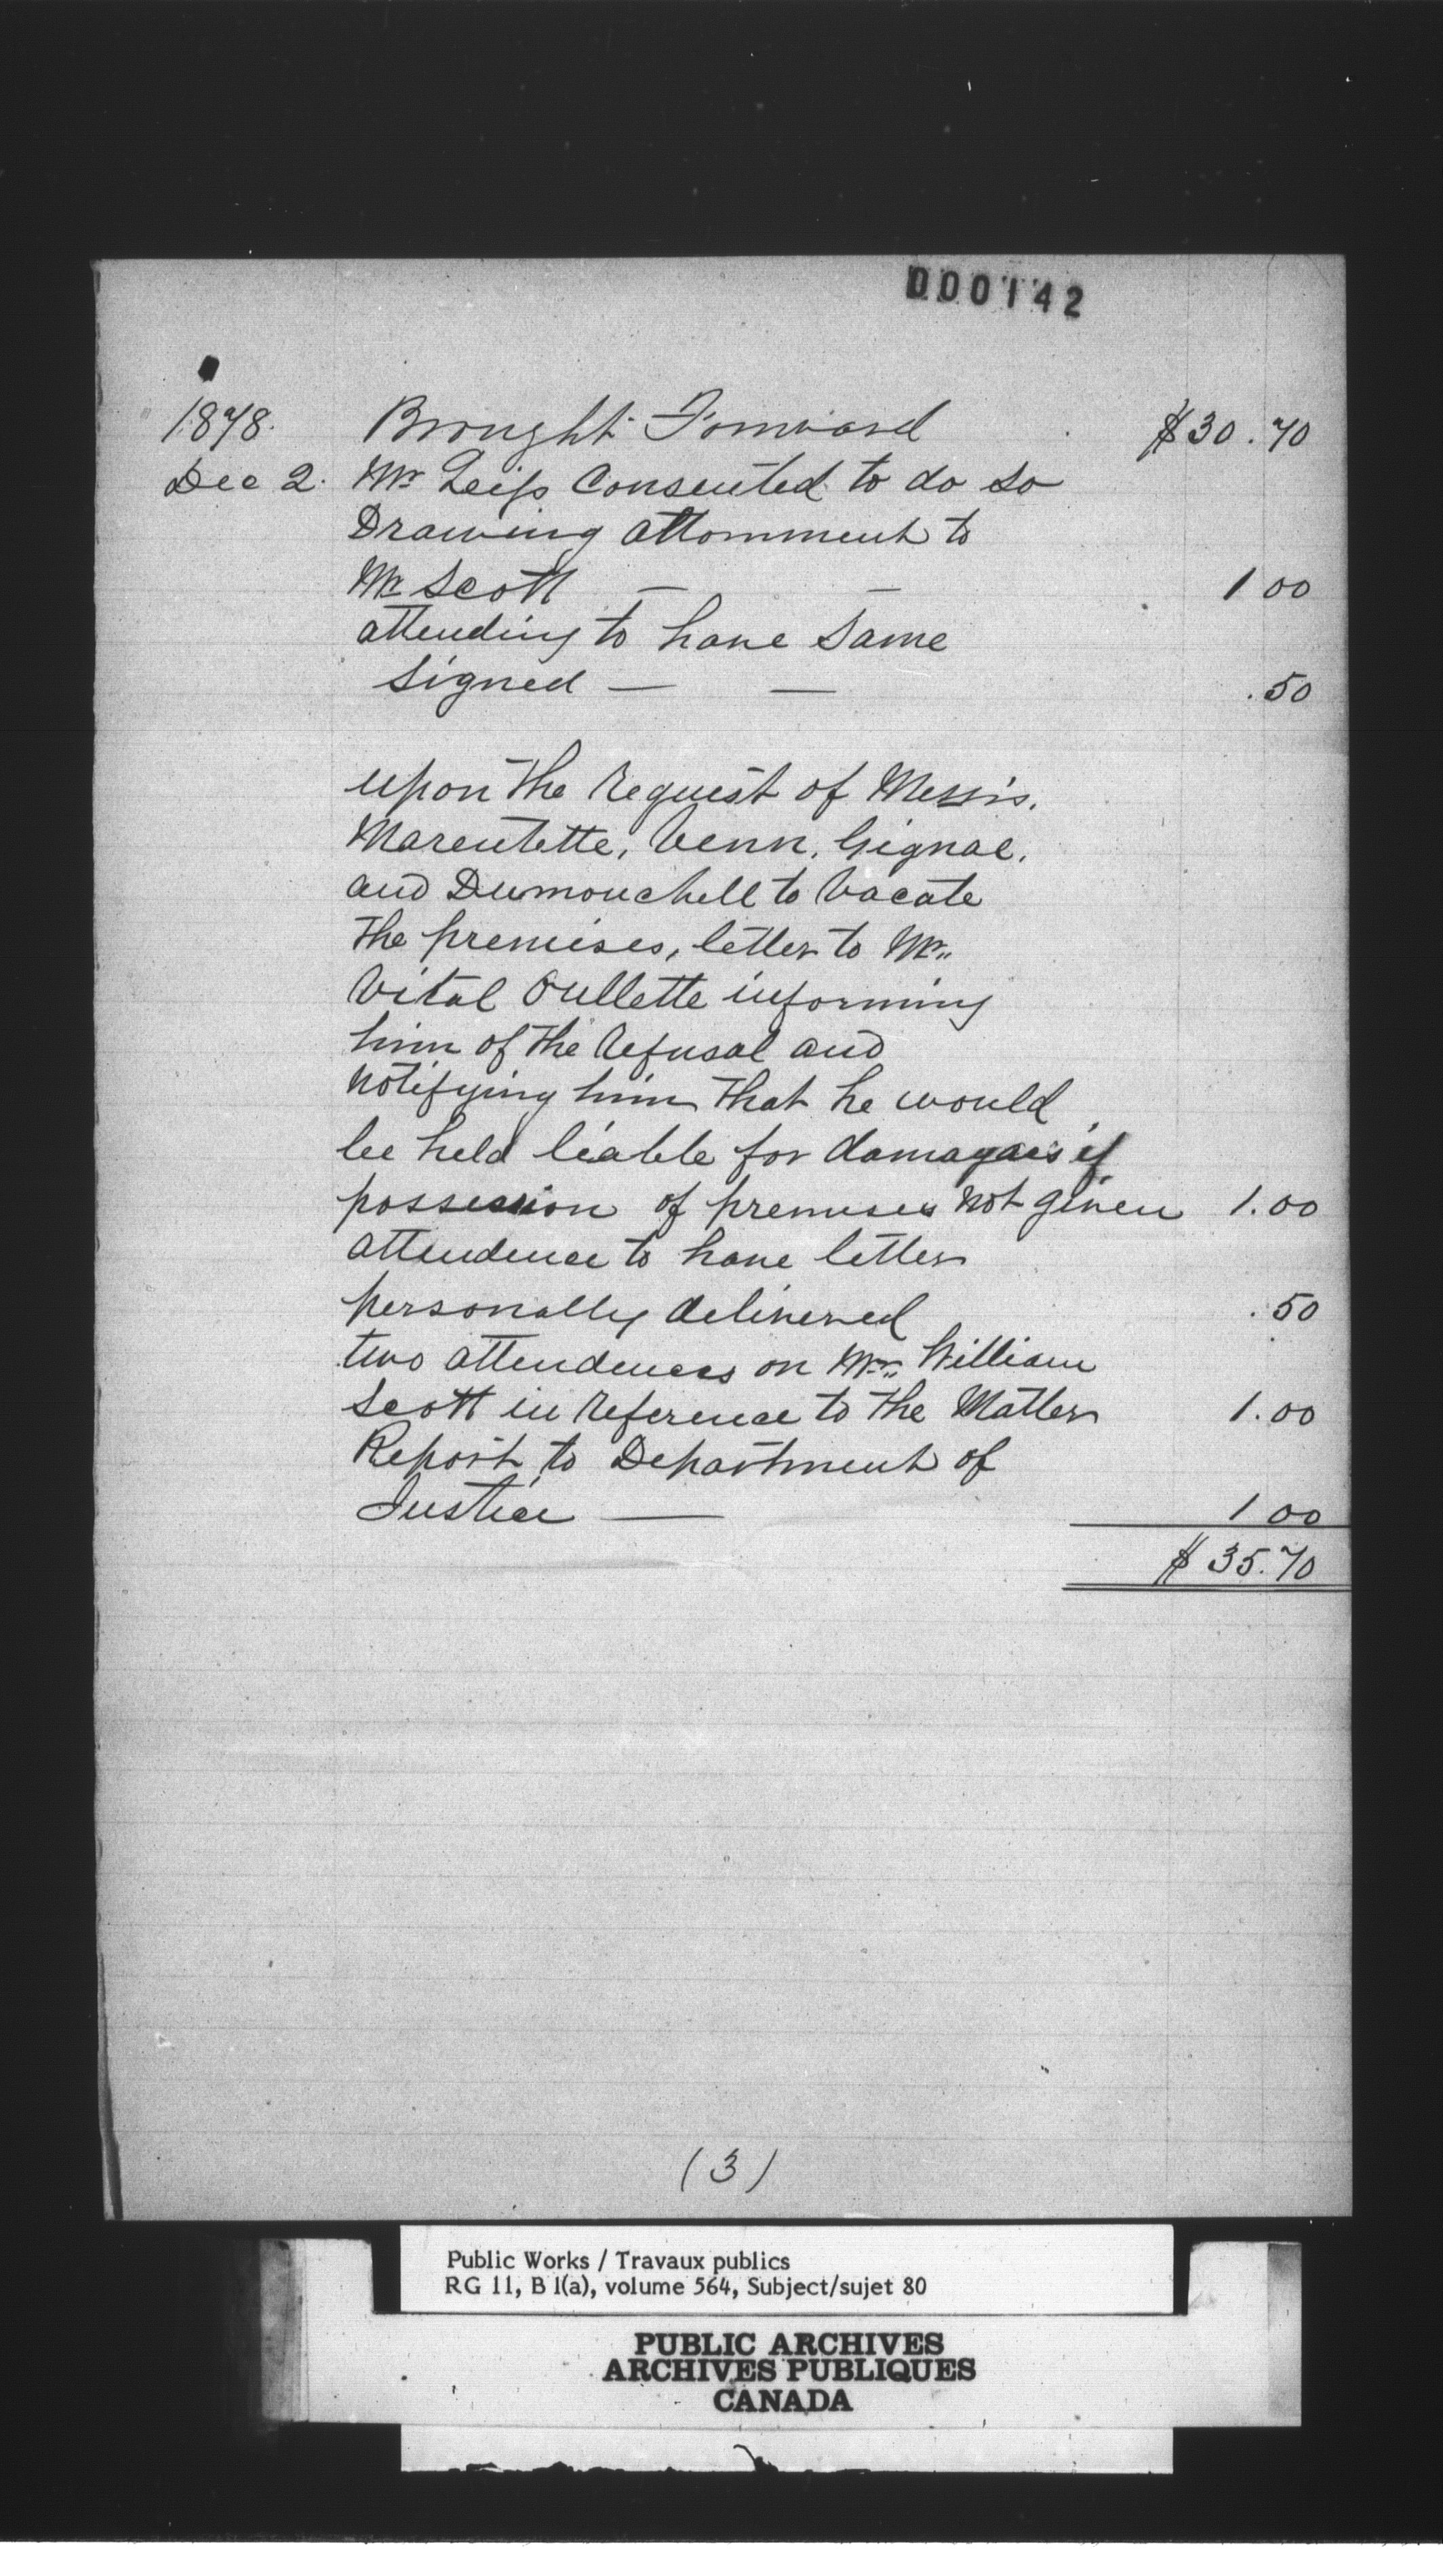 000142
1878. Brought Forward $30.70
Dec 2. Mr Leips Consented to do so
Drawing attornment to
Mr Scott — — 1 00
attending to have same
signed — — .50
upon the request of Messrs.
Marentette, Venn, Gignac,
and Dumouchell to vacate
the premises, letter to Mr
Vital Oullette informing
him of the refusal and
notifying him that he would
be held liable for damages if
possession of premises not given 1.00
attendence to have letter
personally delivered .50
two attendences on Mr William
Scott in reference to the Matter 1.00
Report to Department of
Justice — 1 00
$35.70
(3)
Public Works / Travaux publics
RG 11, B 1(a), volume 564, Subject/sujet 80
PUBLIC ARCHIVES
ARCHIVES PUBLIQUES
CANADA